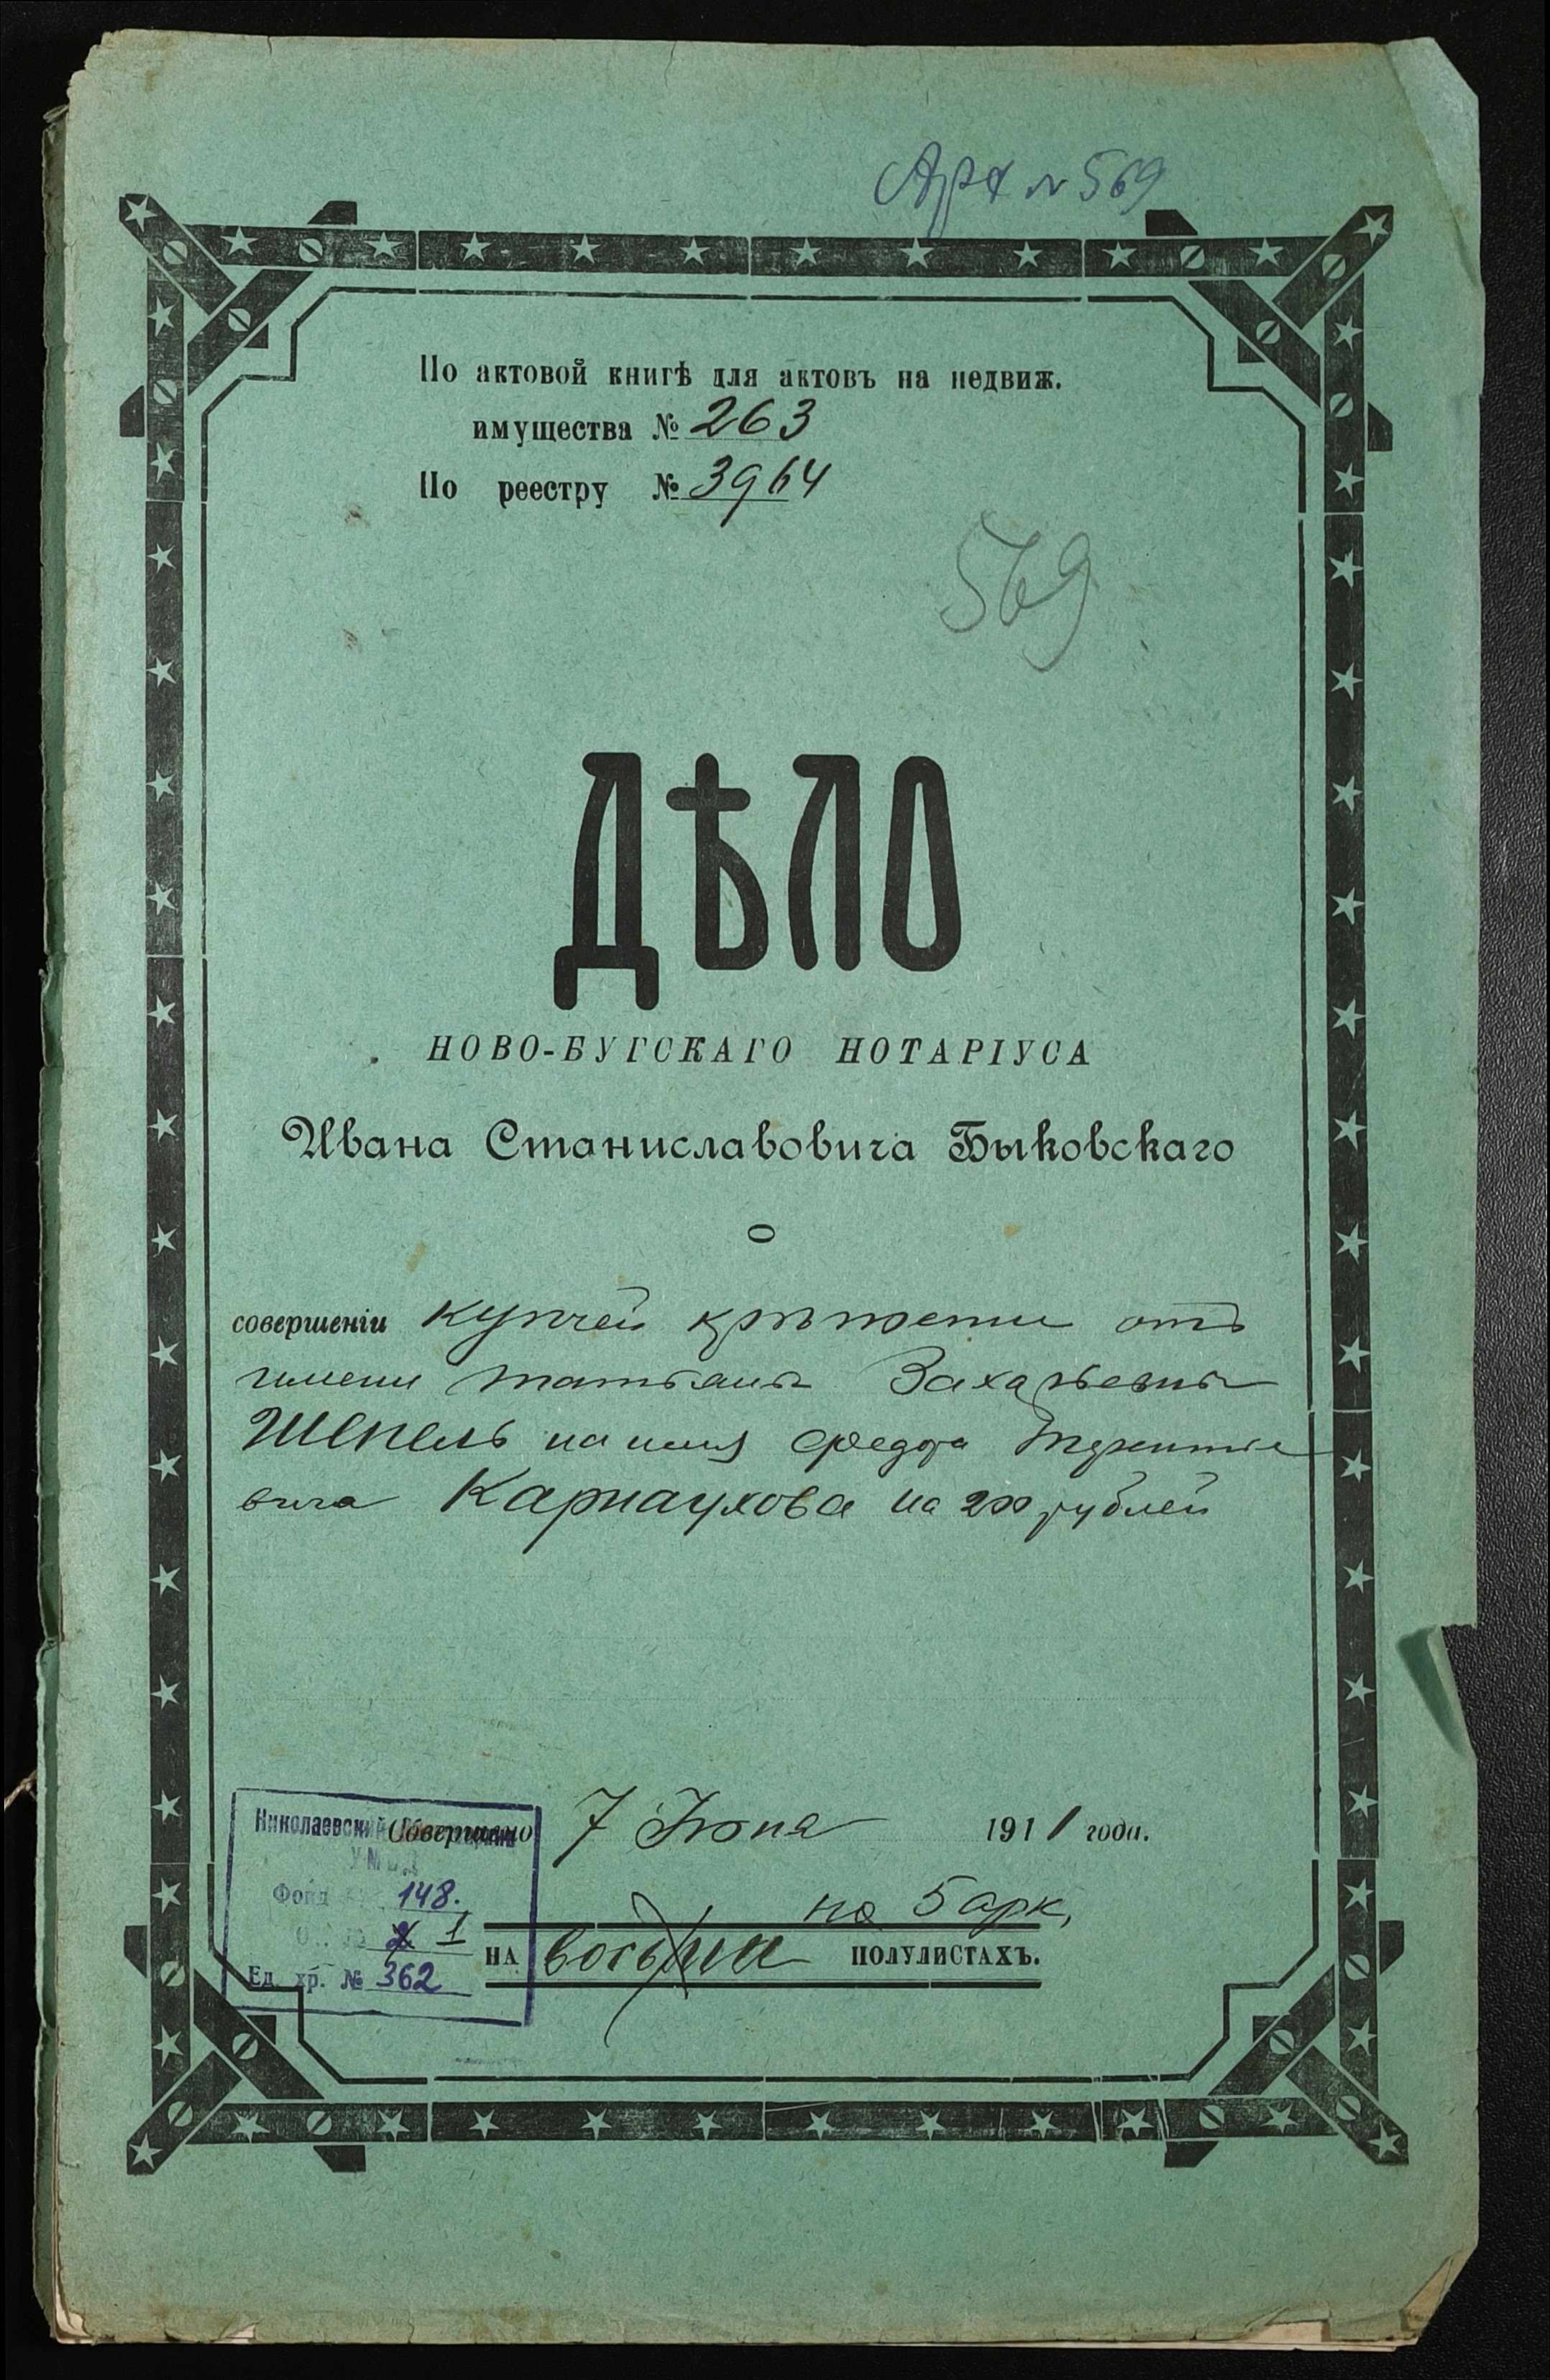 Арх № 569
По актовой книгѣ для актовъ на недвиж.
имущества № 263
По реестру № 3964
569
ДѢЛО
НОВО-БУГСКАГО НОТАРІУСА
Ивана Станиславовича Быковскаго
О
совершеніи купчей крѣпости отъ
имени Татьяны Захарьевны
Шепель на имя Федора Терентіе
вича Карнаухова на 200 рублей
Николаевский
Совершено 7 Іюня 1911 года.
Фонд 148.
на 5 арк,
1
НА восьми ПОЛУЛИСТАХЪ.
Ед. хр. № 362